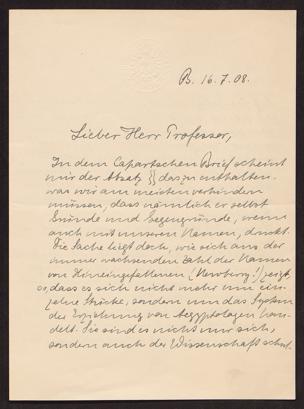 B. 16.7.08.
Lieber Herr Professor,
In dem Capartschen Brief scheint
mir der Absatz [] das zu enthalten.
was wir am meisten verhindern
müssen, dass nämlich er selbst
Gründe und Gegengründe, wenn
auch mit unseren Namen, druckt.
Die Sache liegt doch, wie sich aus der
immer wachsenden Zahl der Namen
von Hineingefallenen (Newberry!) zeigt,
so, dass es sich nicht mehr um ein-
zelne Stücke, sondern um das System
der Erziehung von Aegyptologen han-
delt. Sie sind es nicht nur sich,
sondern auch der Wissenschaft schul-